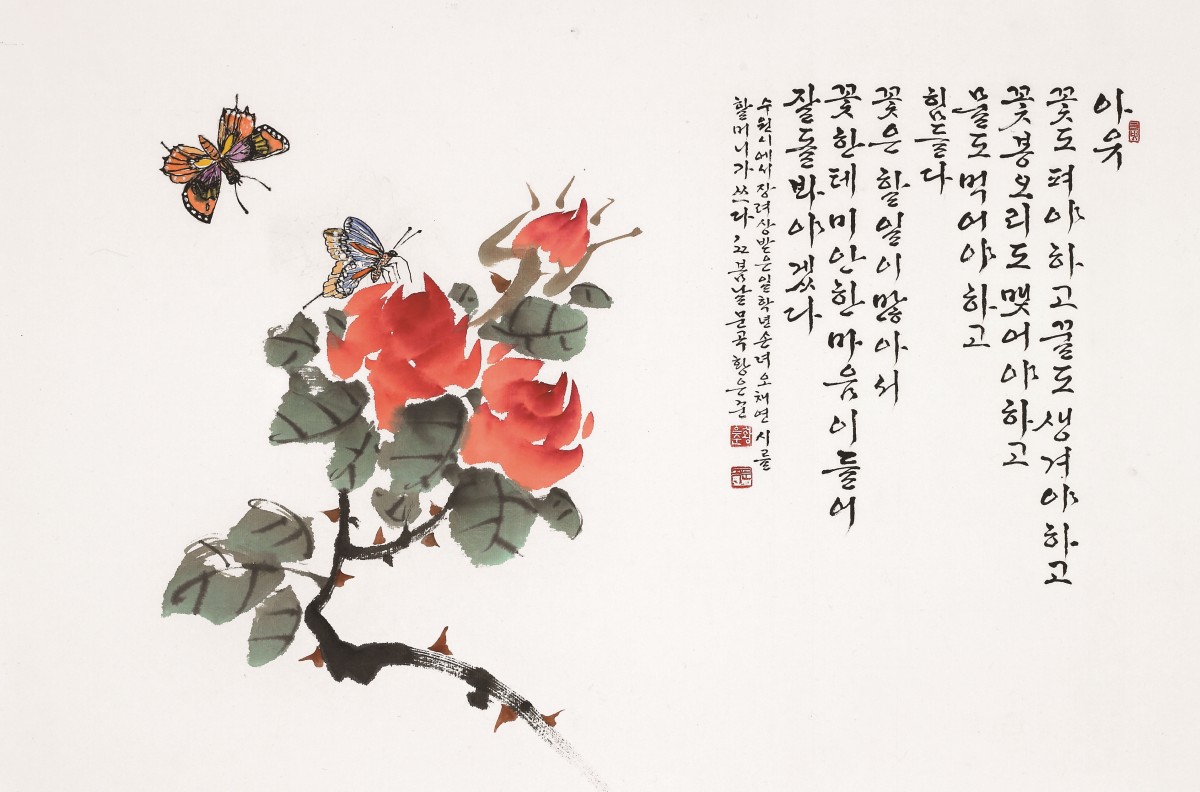 아웃
꽃도 펴야 하고 꿀도 생겨야 하고
꽃봉오리도 맺어야 하고
물도 먹어야 하고
힘들다
꽃은 할 일이 많아서
꽃한테 미안한 마음이 들어
잘 돌봐야겠다
수원시에서 장려상 받은 일학년 손녀 오채연 시를
할머니가 쓰다, 22 봄날 문곡 황은준